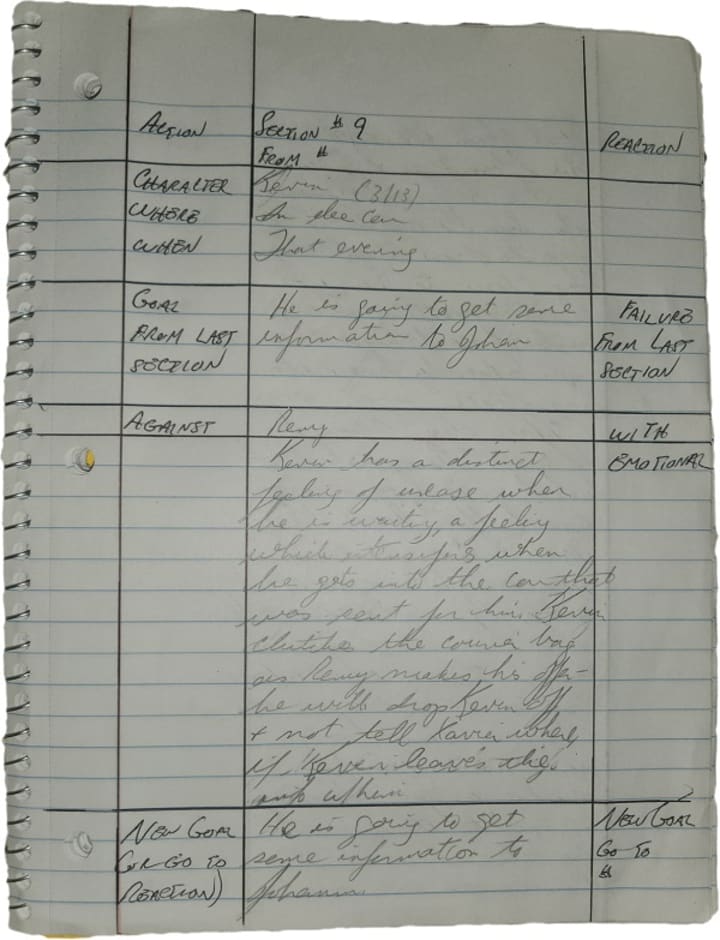 ACTION SECTION # 9 REACTION
FROM #
CHARACTER Kevin (3/13)
WHERE In the Car
WHEN That evening
GOAL He is going to get some FAILURE
FROM LAST information to Johan FROM LAST
SECTION SECTION
AGAINST Remy WITH
Kevin has a distinct EMOTIONAL
feeling of unease when
he is waiting, a feeling
which intensifies when
he gets into the car that
was sent for him. Kevin
clutches the courier bag
as Remy makes his offer-
he will drop Kevin off
+ not tell Xavier where,
if Kevin leaves the
with him
NEW GOAL He is going to get NEW GOAL
(OR GO TO some information to GO TO
REACTION) Johanna. #